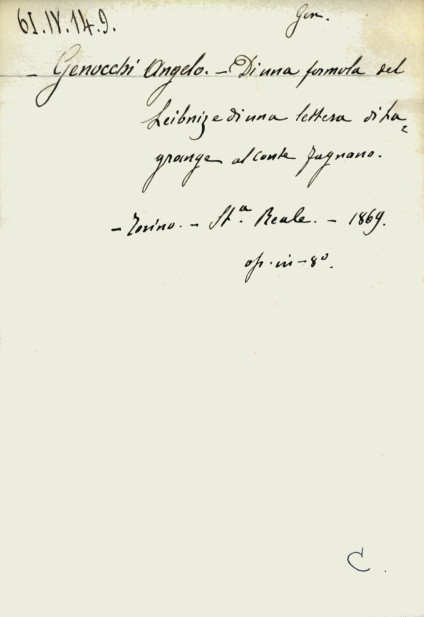 61.IV.14.9.
Gen.
- Genocchi Angelo. - Di una formula del
Leibniz e di una lettera di La=
grange al conte Fagnano.
- Torino. - St.a Reale. - 1869.
op. in-8°.
C.